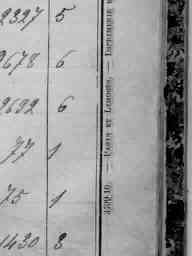 2327 5
2678 6
2692 6
77 1
75 1
1430 8
PARIS ET LIMOGES. — IMPRIMERIE